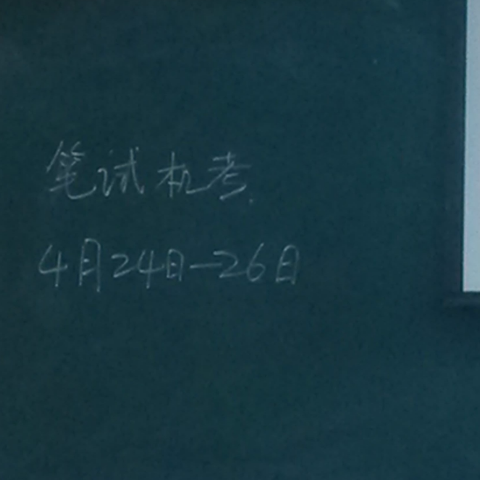 笔试机考.
4月24日—26日